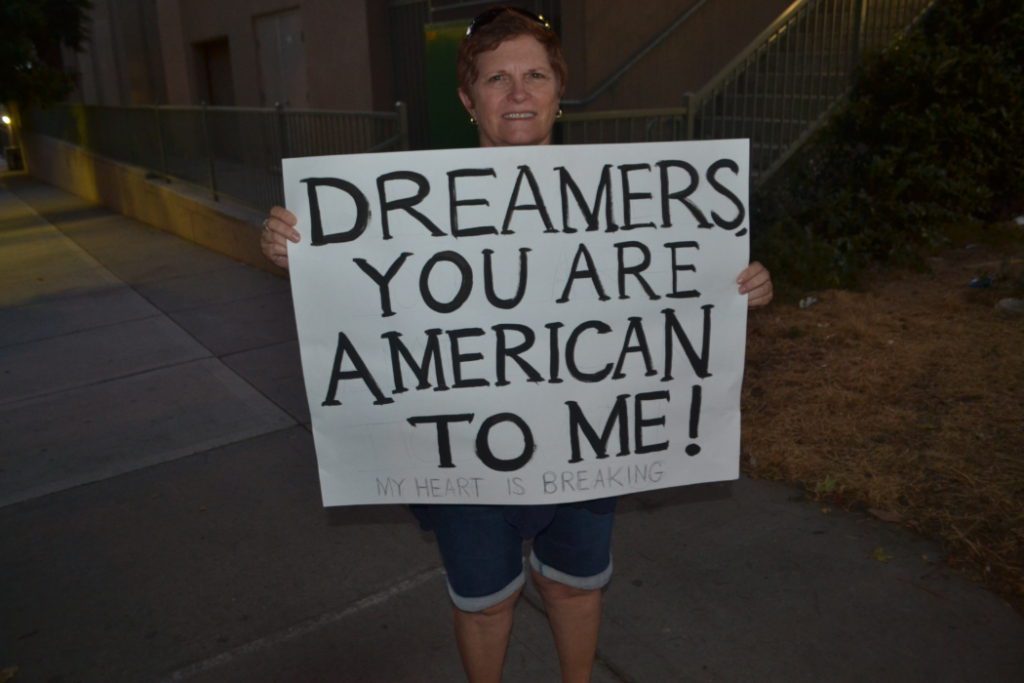 DREAMERS,
YOU ARE
AMERICAN
TO ME!
MY HEART IS BREAKING